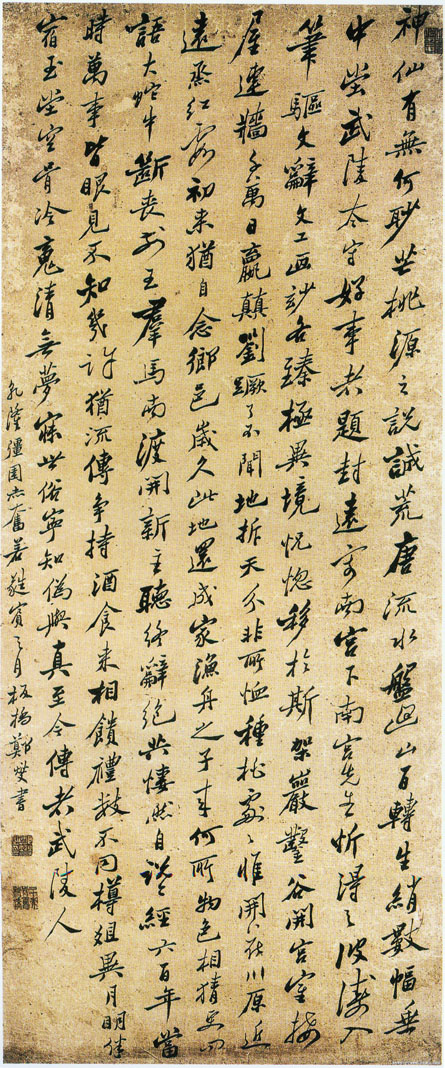 神仙有無何眇芒桃源之說誠荒唐流水盤迴山百轉生綃數幅垂
中堂武陵太守好事者題封遠寄南宮下南宮先生忻得之波濤入
筆驅文辭文工画妙各臻極異境恍惚移於斯架巖鑿谷開宮室接
屋連牆千萬日嬴顛劉蹶了不聞地坼天分非所恤種桃處々惟開花川原近
遠蒸紅霞初來猶自念鄉邑歲久此地還成家漁舟之子來何所物色相猜更問
語大蛇中斷喪前王羣馬南渡開新主聽終辭絕共悽然自說經六百年當
時萬事皆眼見不知幾許猶流傳爭持酒食來相饋禮數不同樽俎異月明伴
宿玉堂空骨冷魂清無夢寐世俗寧知偽與真至今傳者武陵人
乾隆彊圉赤奮若蕤賓之月板橋鄭燮書